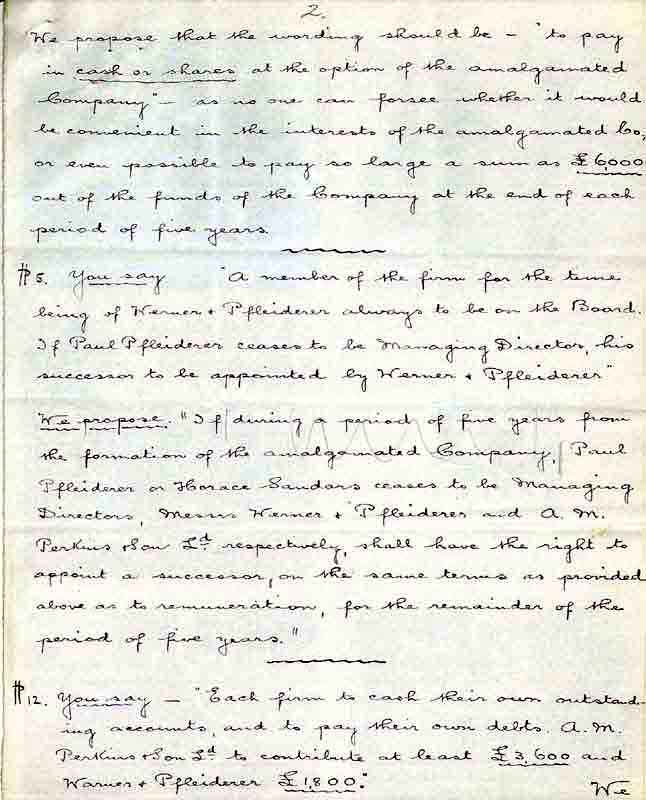 2.
We propose that the wording should be – "to pay
in cash or shares at the option of the amalgamated
Company" – as no one can forsee whether it would
be convenient in the interests of the amalgamated Co,
or even possible to pay so large a sum as £6,000
out of the funds of the Company at the end of each
period of five years.
5. You say "A member of the firm for the time
being of Werner & Pfleiderer always to be on the Board.
If Paul Pfleiderer ceases to be Managing Director, his
successor to be appointed by Werner & Pfleiderer"
We propose. "If during a period of five years from
the formation of the amalgamated Company, Paul
Pfleiderer or Horace Sandars ceases to be Managing
Directors, Messrs Werner & Pfleiderer and A. M.
Perkins & Son Ld. respectively, shall have the right to
appoint a successor, on the same terms as provided
above as to remuneration, for the remainder of the
period of five years."
12. You say – "Each firm to cash their own outstand-
ing accounts, and to pay their own debts. A. M.
Perkins & Son Ld. to contribute at least £3,600 and
Warner & Pfleiderer £1,800."
We